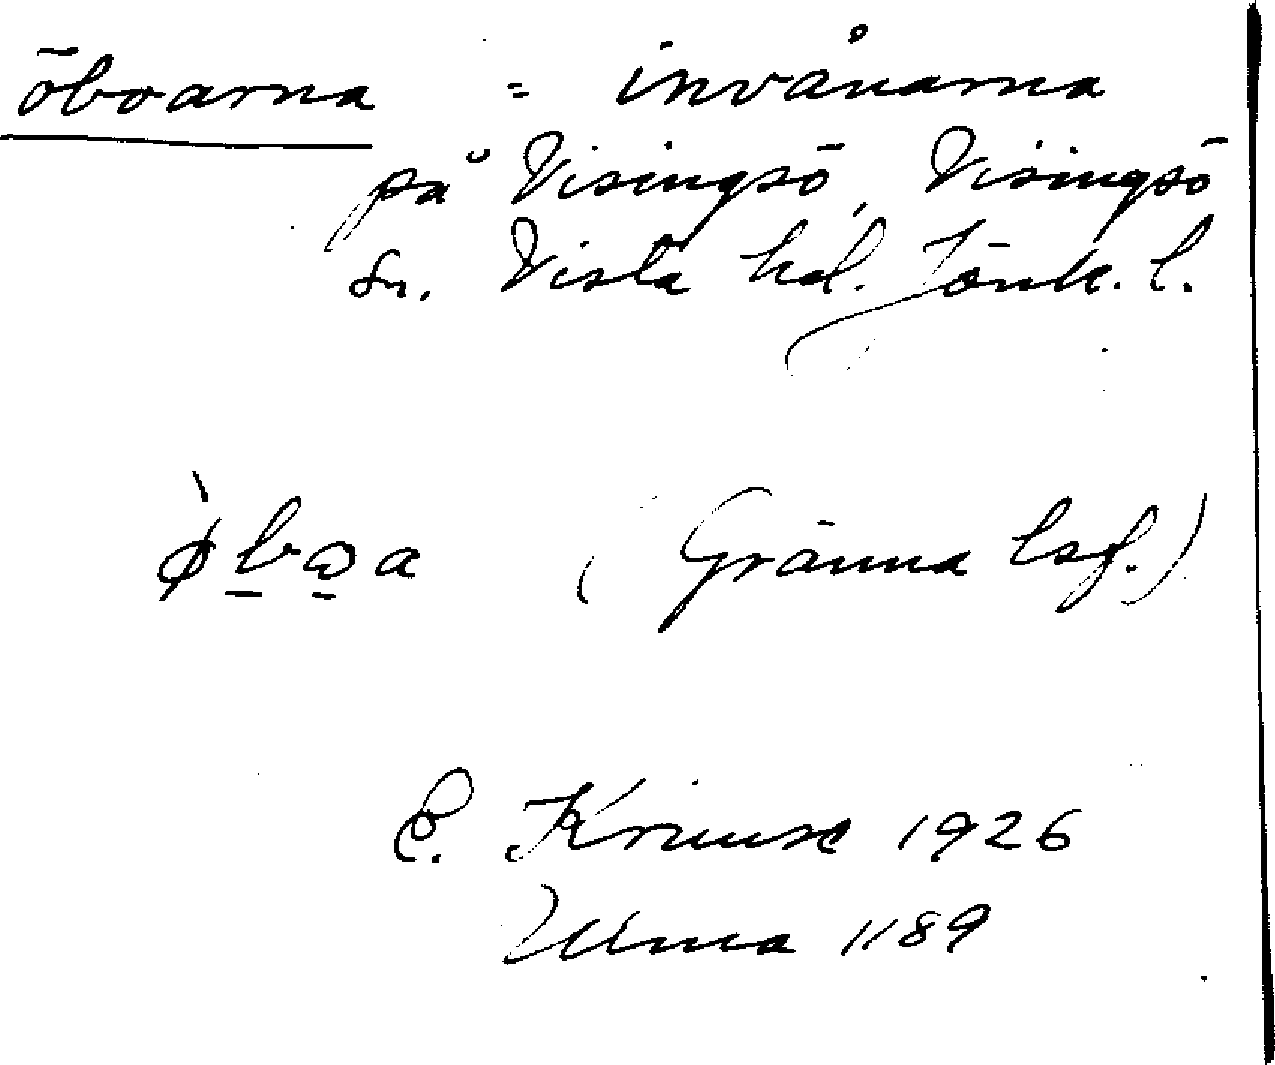 öboarna = invånarna
på Visingsö, Visingsö
sn. Vista hd. Jönk. l.
(Gränna lsf.)
E. Kruuse 1926
Ulma 1189